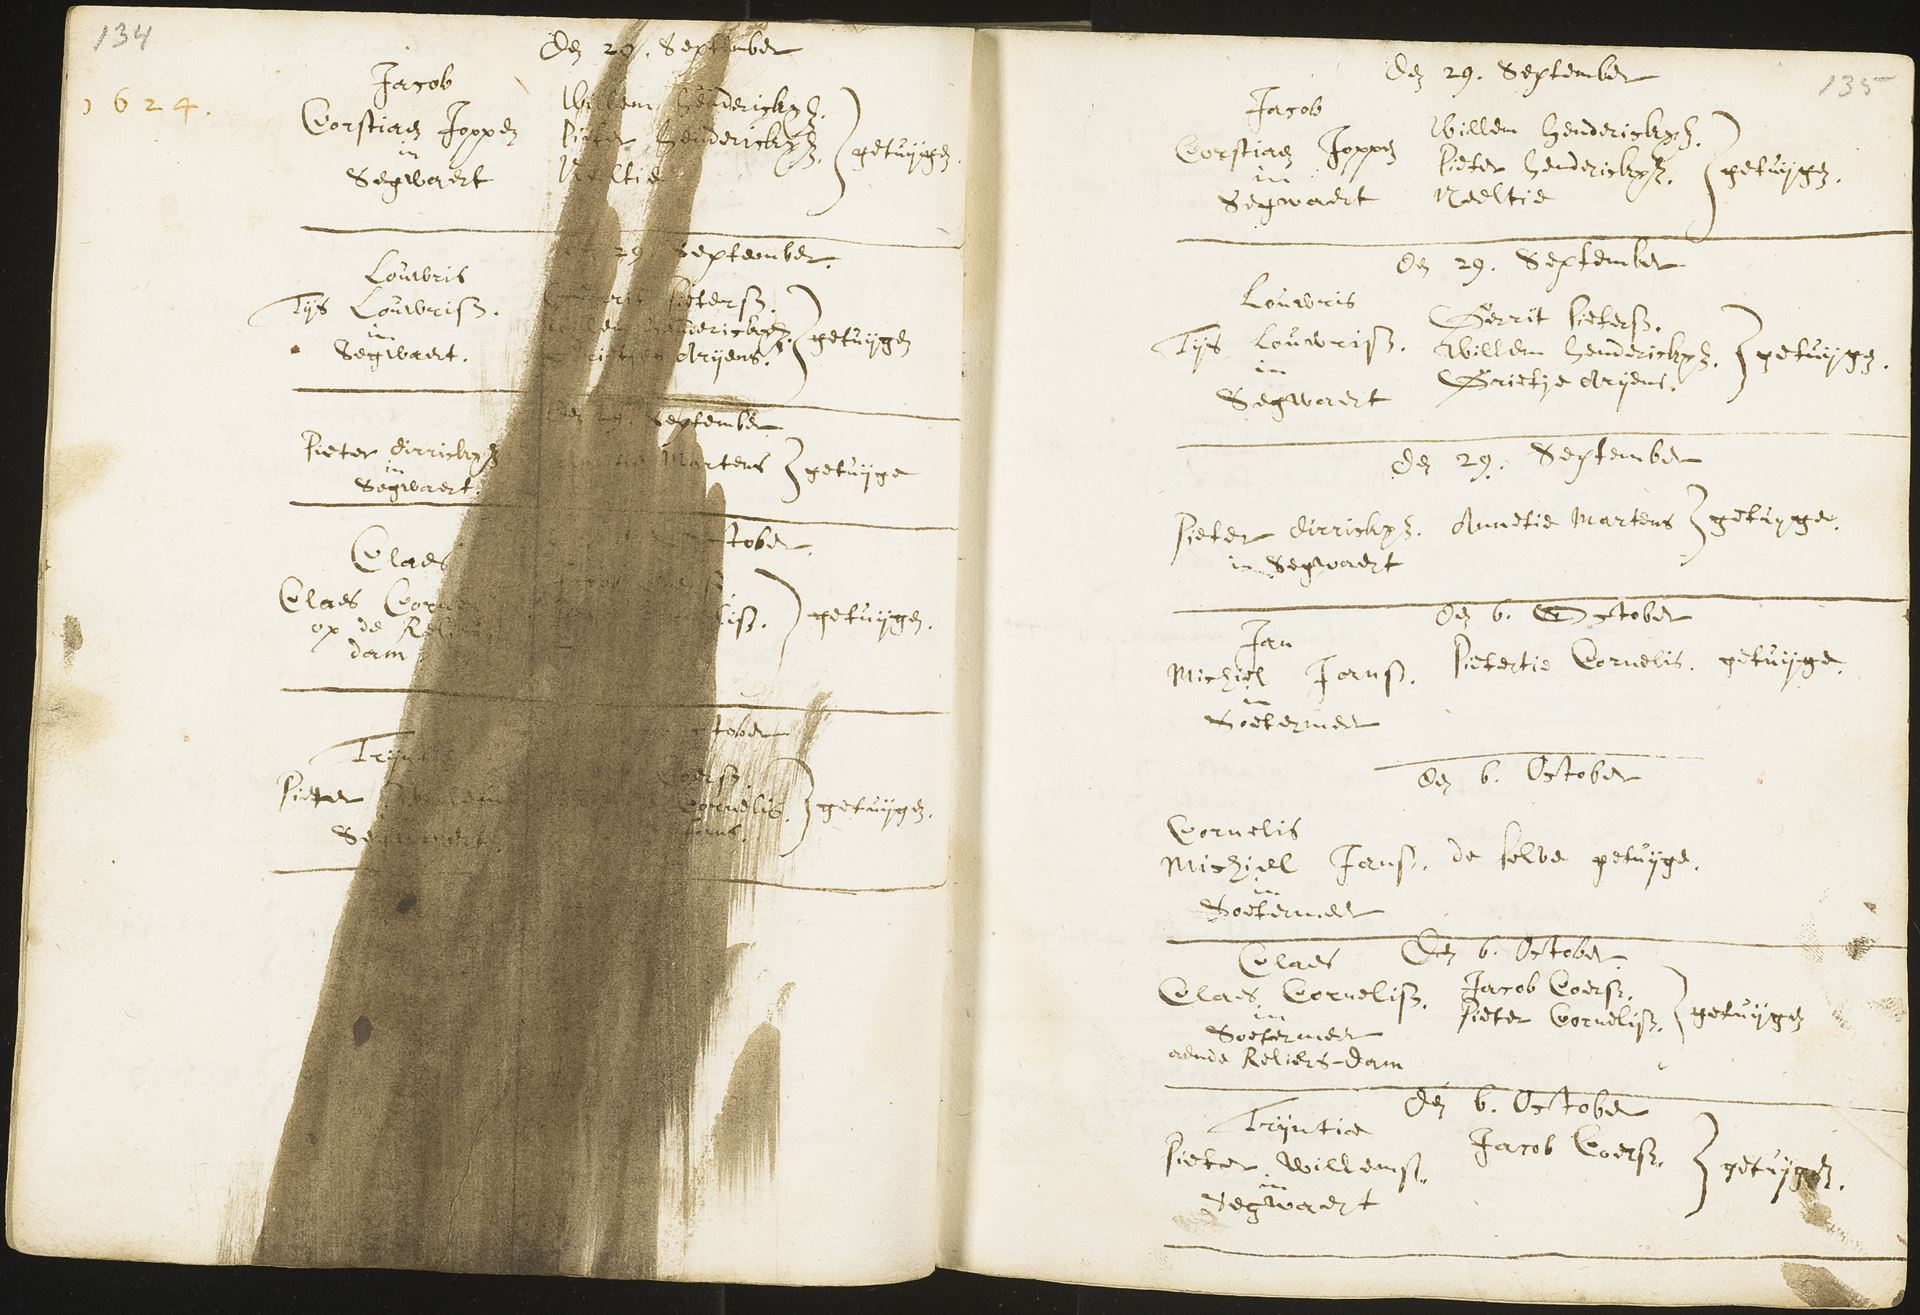 134
1624.
Den 29. September
Jacob
Corstiaen Joppen
in
Segwaert
Willem Henderickxsz.
Pieter Henderickxsz.
Neeltie
getuijgen.
29 September.
Louwris
Tijs Louwrisz.
in
Segwaert.
Pietersz.
Willem Henderickxsz.
Grietien Arijens.
getuijgen
Den 29. September
Pieter Dirrickxsz
in
Segwaert.
Martens
getuijge
October.
Claes
Claes
op de
dam
getuijgen.
October
Trijntie
Pieter
Segwaert.
Coersz.
Cornelis.
Jans.
getuijgen.
135
Den 29. September
Jacob
Corstiaen Joppen
in
Segwaert
Willem Henderickxsz.
Pieter Henderickxsz.
Neeltie
getuijgen.
Den 29. September
Louwris
Tijs Louwrisz.
in
Segwaert
Gerrit Pietersz.
Willem Henderickxsz.
Grietje Arijens.
getuijgen.
Den 29. September
Pieter Dirrickxsz. Annetie Martens getuijge.
in Segwaert
Den 6. October
Jan
Michiel Jansz. Pietertie Cornelis. getuijge.
in
Soetermeer
Den 6. October
Cornelis
Michiel Jansz. de selve getuijge.
in
Soetermeer
Den 6. October
Claes
Claes Cornelisz.
in
Soetermeer
aende Reliers-dam
Jacob Coersz.
Pieter Cornelisz.
getuijgen
Den 6. October
Trijntie
Pieter Willemsz.
in
Segwaert
Jacob Coersz.
getuijgen.